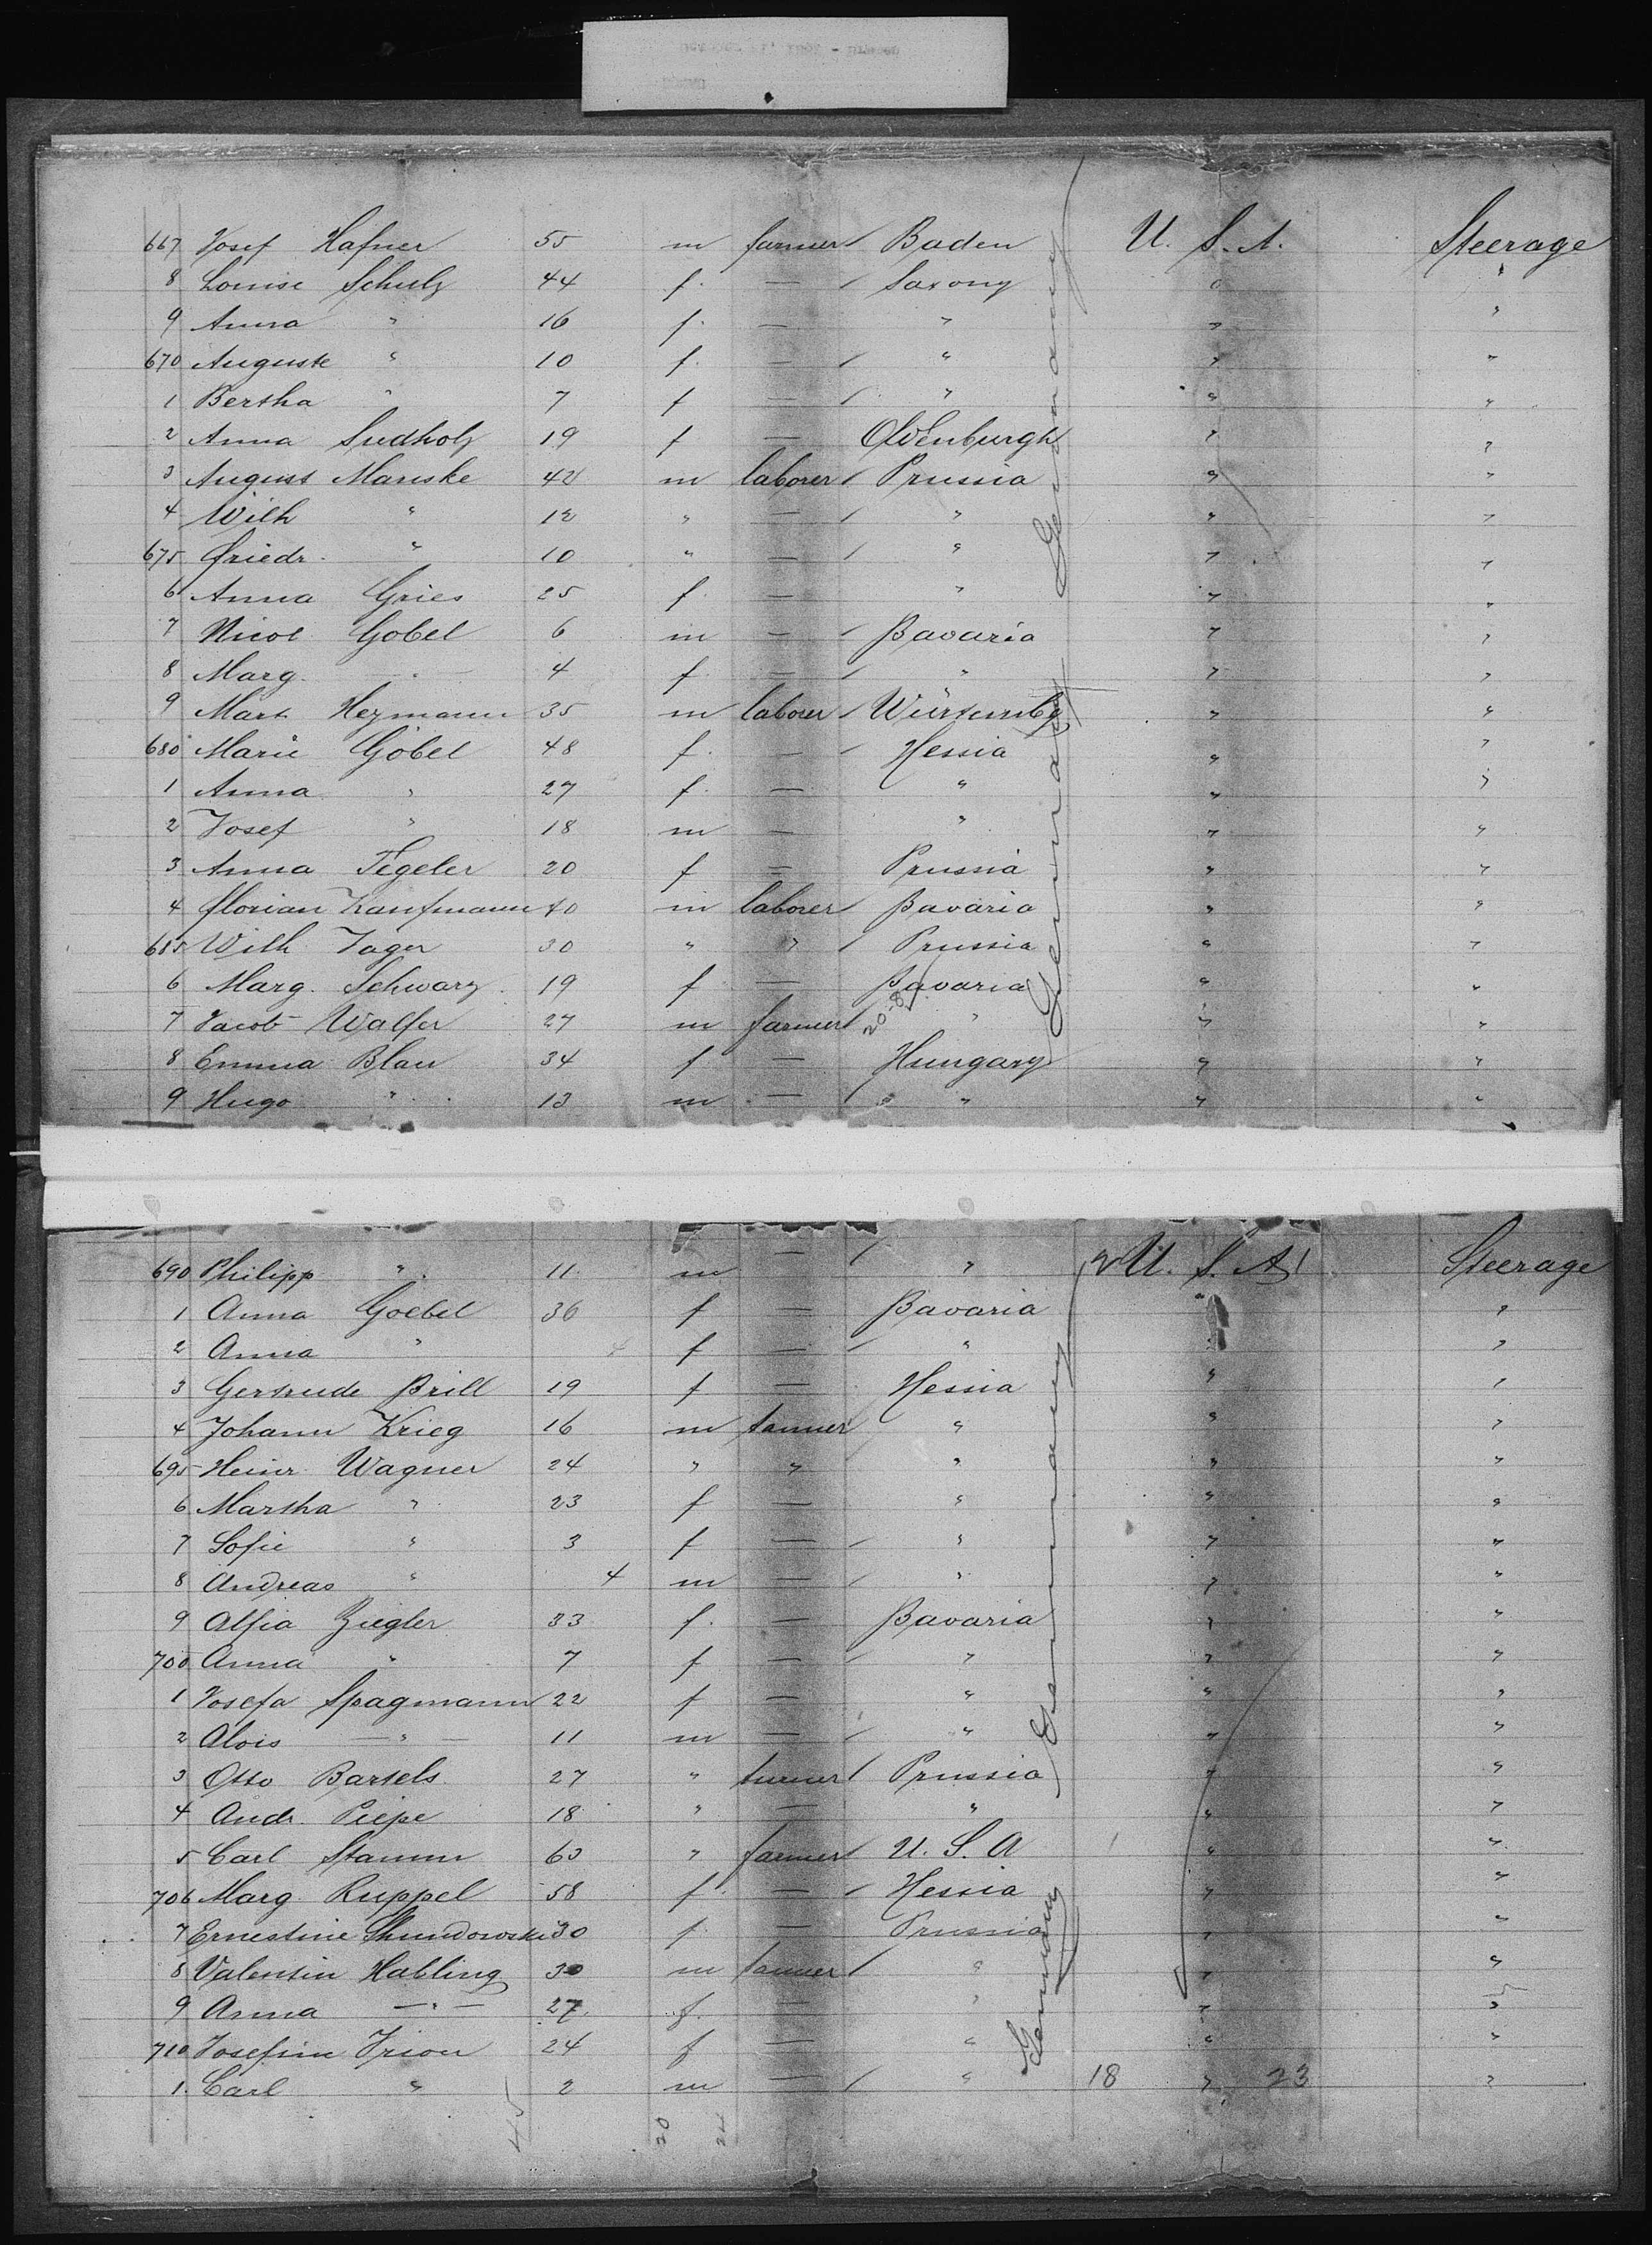 667 Josef Hafner 55 m farmer Baden U. S. A. Steerage
8 Louise Schulz 44 f. — Saxony " "
9 Anna " 16 f. — " " "
670 Auguste " 10 f. — " " "
1 Bertha " 7 f — " " "
2 Anna Sudholz 19 f — Oldenburgh " "
3 August Manske 42 m laborer Prussia " "
4 Wilh " 12 " — " " "
675 Friedr. " 10 " — " " "
6 Anna Gries 25 f. — " " "
7 Nicol Gobel 6 m — Bavaria " "
8 Marg. " 4 f — " " "
9 Mart Hezmann 35 m laborer Würtembg " "
680 Marie Göbel 48 f. — Hessia " "
1 Anna " 27 f. — " " "
2 Josef " 18 m — " " "
3 Anna Tegeler 20 f — Prussia " "
4 Florian Kaufmann 40 m laborer Bavaria " "
685 Wilh Jager 30 " " Prussia " "
6 Marg. Schwarz 19 f — Bavaria " "
7 Jacob Walfer 27 m farmer " " "
8 Emma Blau 34 f — Hungary " "
9 Hugo " 13 m — " " "
Germany
Germany
690 Philipp " 11 m — " U. S. A. Steerage
1 Anna Goebel 36 f — Bavaria " "
2 Anna " 4 f — " " "
3 Gertrude Brill 19 f — Hessia " "
4 Johann Krieg 16 m tanner " " "
695 Heinr. Wagner 24 " " " " "
6 Martha " 23 f — " " "
7 Sofie " 3 f — " " "
8 Andreas " 4 m — " " "
9 Alfia Ziegler 33 f. — Bavaria " "
700 Anna " 7 f — " " "
1 Josefa Spagmann 22 f — " " "
2 Alois — " — 11 m — " " "
3 Otto Bartels 27 " turner Prussia " "
4 Andr. Piepe 18 " — " " "
5 Carl Stamm 63 " farmer U. S. A " "
706 Marg. Ruppel 58 f. — Hessia " "
7 Ernestine 30 f. — Prussia " "
8 Valentin Habling 30 m tanner " " "
9 Anna — " — 27 f. — " " "
710 Josefine Trion 24 f — " " "
1. Carl " 2 m — " 18 " 23 "
Germany
Germany
45 20 24